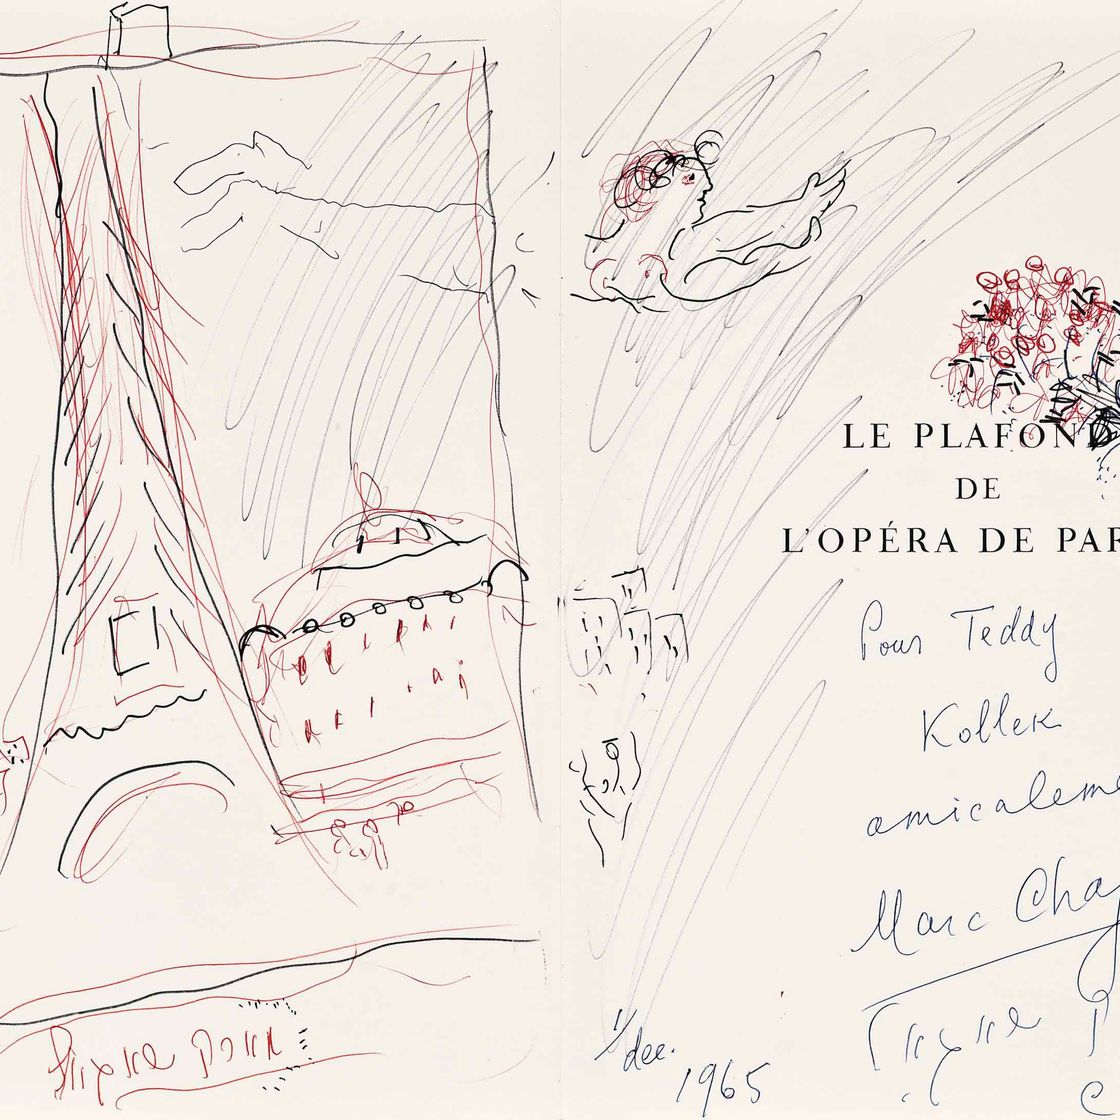 LE PLAFOND
DE
L'OPÉRA DE PAR
Pour Teddy
Kollek
amicaleme
Marc Chag
1/ dec. 1965